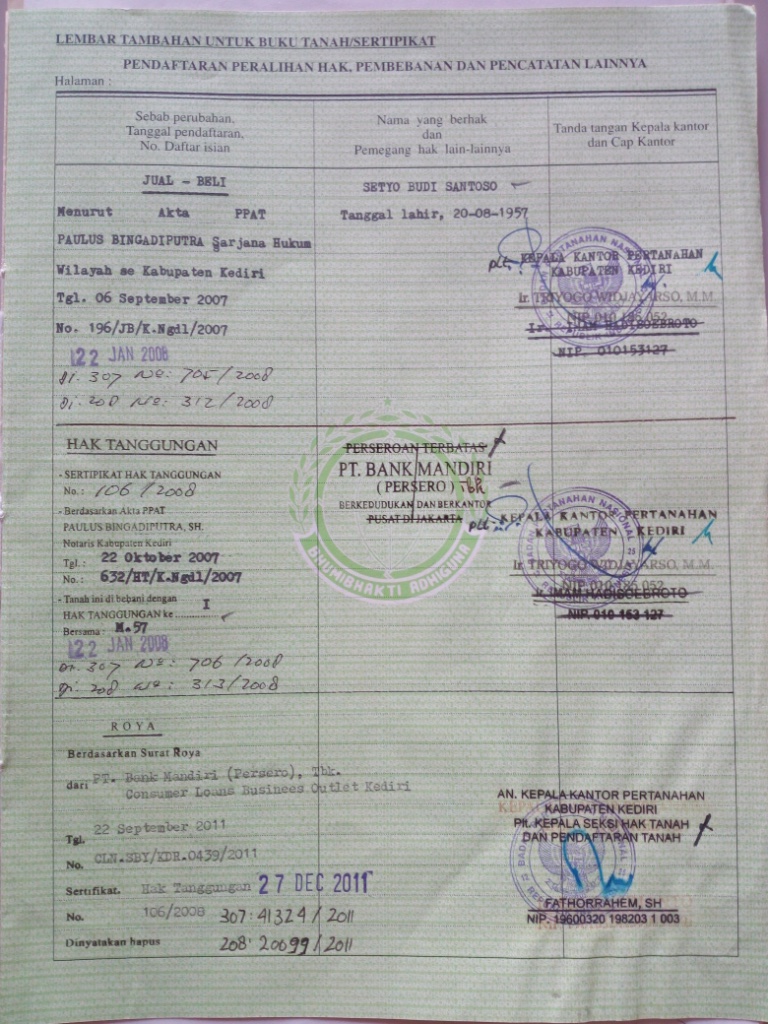 LEMBAR TAMBAHAN UNTUK BUKU TANAH/SERTIPIKAT
PENDAFTARAN PERALIHAN HAK, PEMBEBANAN DAN PENCATATAN LAINNYA
Halaman :
Sebab perubahan,
Tanggal pendaftaran,
No. Daftar isian
Nama yang berhak
dan
Pemegang hak lain-lainnya
Tanda tangan Kepala kantor
dan Cap Kantor
JUAL - BELI
Menurut Akta PPAT
PAULUS BINGADIPUTRA Sarjana Hukum
Wilayah se Kabupaten Kediri
Tgl. 06 September 2007
No. 196/JB/K.Ngdl/2007
22 JAN 2008
Di. 307 No: 705/2008
Di. 208 No: 312/2008
SETYO BUDI SANTOSO
Tanggal lahir, 20-08-1957
plt. KEPALA KANTOR PERTANAHAN
KABUPATEN KEDIRI
Ir. TRIYOGO WIDJAYARSO, M.M.
NIP. 010 186 052
Ir. IMAM HADISOEBROTO
NIP. 010153127
HAK TANGGUNGAN
- SERTIPIKAT HAK TANGGUNGAN
No. : 106/2008
- Berdasarkan Akta PPAT
PAULUS BINGADIPUTRA, SH.
Notaris Kabupaten Kediri
Tgl. : 22 Oktober 2007
No. : 632/HT/K.Ngdl/2007
- Tanah ini di bebani dengan
HAK TANGGUNGAN ke I
Bersama : M.57
22 JAN 2008
Di. 307 No: 706/2008
Di. 208 No: 313/2008
PERSEROAN TERBATAS
PT. BANK MANDIRI
( PERSERO ) Tbk
BERKEDUDUKAN DAN BERKANTOR
PUSAT DI JAKARTA
plt. KEPALA KANTOR PERTANAHAN
KABUPATEN KEDIRI
Ir. TRIYOGO WIDJAYARSO, M.M.
NIP. 010 186 052
Ir. IMAM HADISOEBROTO
NIP. 010 153 127
BHUMIBHAKTI ADHIGUNA
ROYA
Berdasarkan Surat Roya
dari PT. Bank Mandiri (Persero), Tbk.
Consumer Loans Businees Outlet Kediri
Tgl. 22 September 2011
No. CLN.SBY/KDR.0439/2011
Sertifikat. Hak Tanggungan 27 DEC 2011
No. 106/2008 307: 41324/2011
Dinyatakan hapus 208: 20699/2011
AN. KEPALA KANTOR PERTANAHAN
KABUPATEN KEDIRI
Plt. KEPALA SEKSI HAK TANAH
DAN PENDAFTARAN TANAH
FATHORRAHEM, SH
NIP. 19600320 198203 1 003